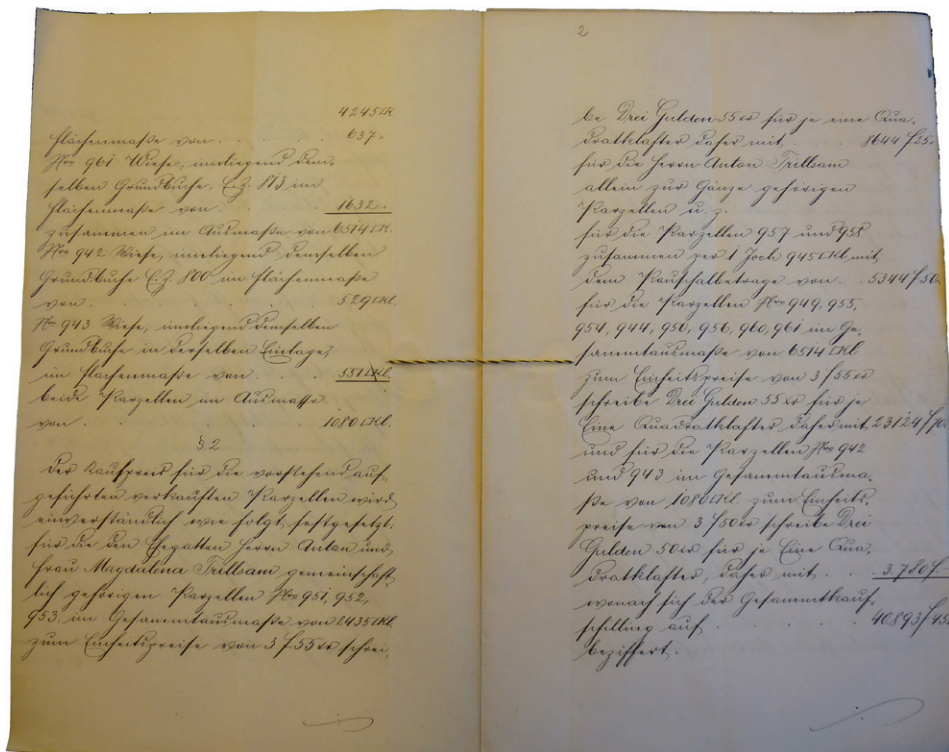 4245 □Kl.
Flächenmaße von . . . . 637 .
Nro 961 Wiese, inneliegend dem-
selben Grundbuche, E.Z. 813 im
Flächenmaße von . . . 1632 .
zusammen im Ausmaße von 6514 □Kl.
Nro 942 Wiese, inneliegend demselben
Grundbuche E.Z. 800 im Flächenmaße
von . . . . 529 □Kl.
Nro 943 Wiese, inneliegend demselben
Grundbuche in derselben Einlage,
im Flächenmaße von . . . 551 □Kl.
beide Parzellen im Ausmaße
von . . . . 1080 □Kl.
§ 2
Der Kaufpreis für die vorstehend auf-
geführten verkauften Parzellen wird
einverständlich wie folgt, festgesetzt:
für die den Ehegatten Herrn Anton und
Frau Magdalena Trillsam gemeinschaft-
lich gehörigen Parzellen Nro 951, 952,
953 im Gesammtausmaße von 2435 □Kl.
zum Einheitspreise von 3 f 55 xr schrei-
2
be Drei Gulden 55 xr für je eine Qua-
dratklafter daher mit . . 8644 f 25.
für die Herrn Anton Trillsam
allein zur Gänze gehörigen
Parzellen u. z.
für die Parzellen 957 und 958
zusammen per 1 Joch 945 □Kl. mit
dem Pauschalbetrage von . . 5344 f 50.
für die Parzellen Nro 949, 955,
954, 944, 950, 956, 960, 961 im Ge-
sammtausmaße von 6514 □Kl
zum Einheitspreise von 3 f 55 xr
schreibe Drei Gulden 55 xr für je
Eine Quadratklafter daher mit 23124 f 70.
und für die Parzellen Nro 942
und 943 im Gesammtausma-
ße von 1080 □Kl. zum Einheits-
preise von 3 f 50 xr schreibe Drei
Gulden 50 xr für je Eine Qua-
dratklafter, daher mit . . . 3.780 f
wonach sich der Gesammtkauf-
schilling auf . . . . 40893 f 45.
beziffert.